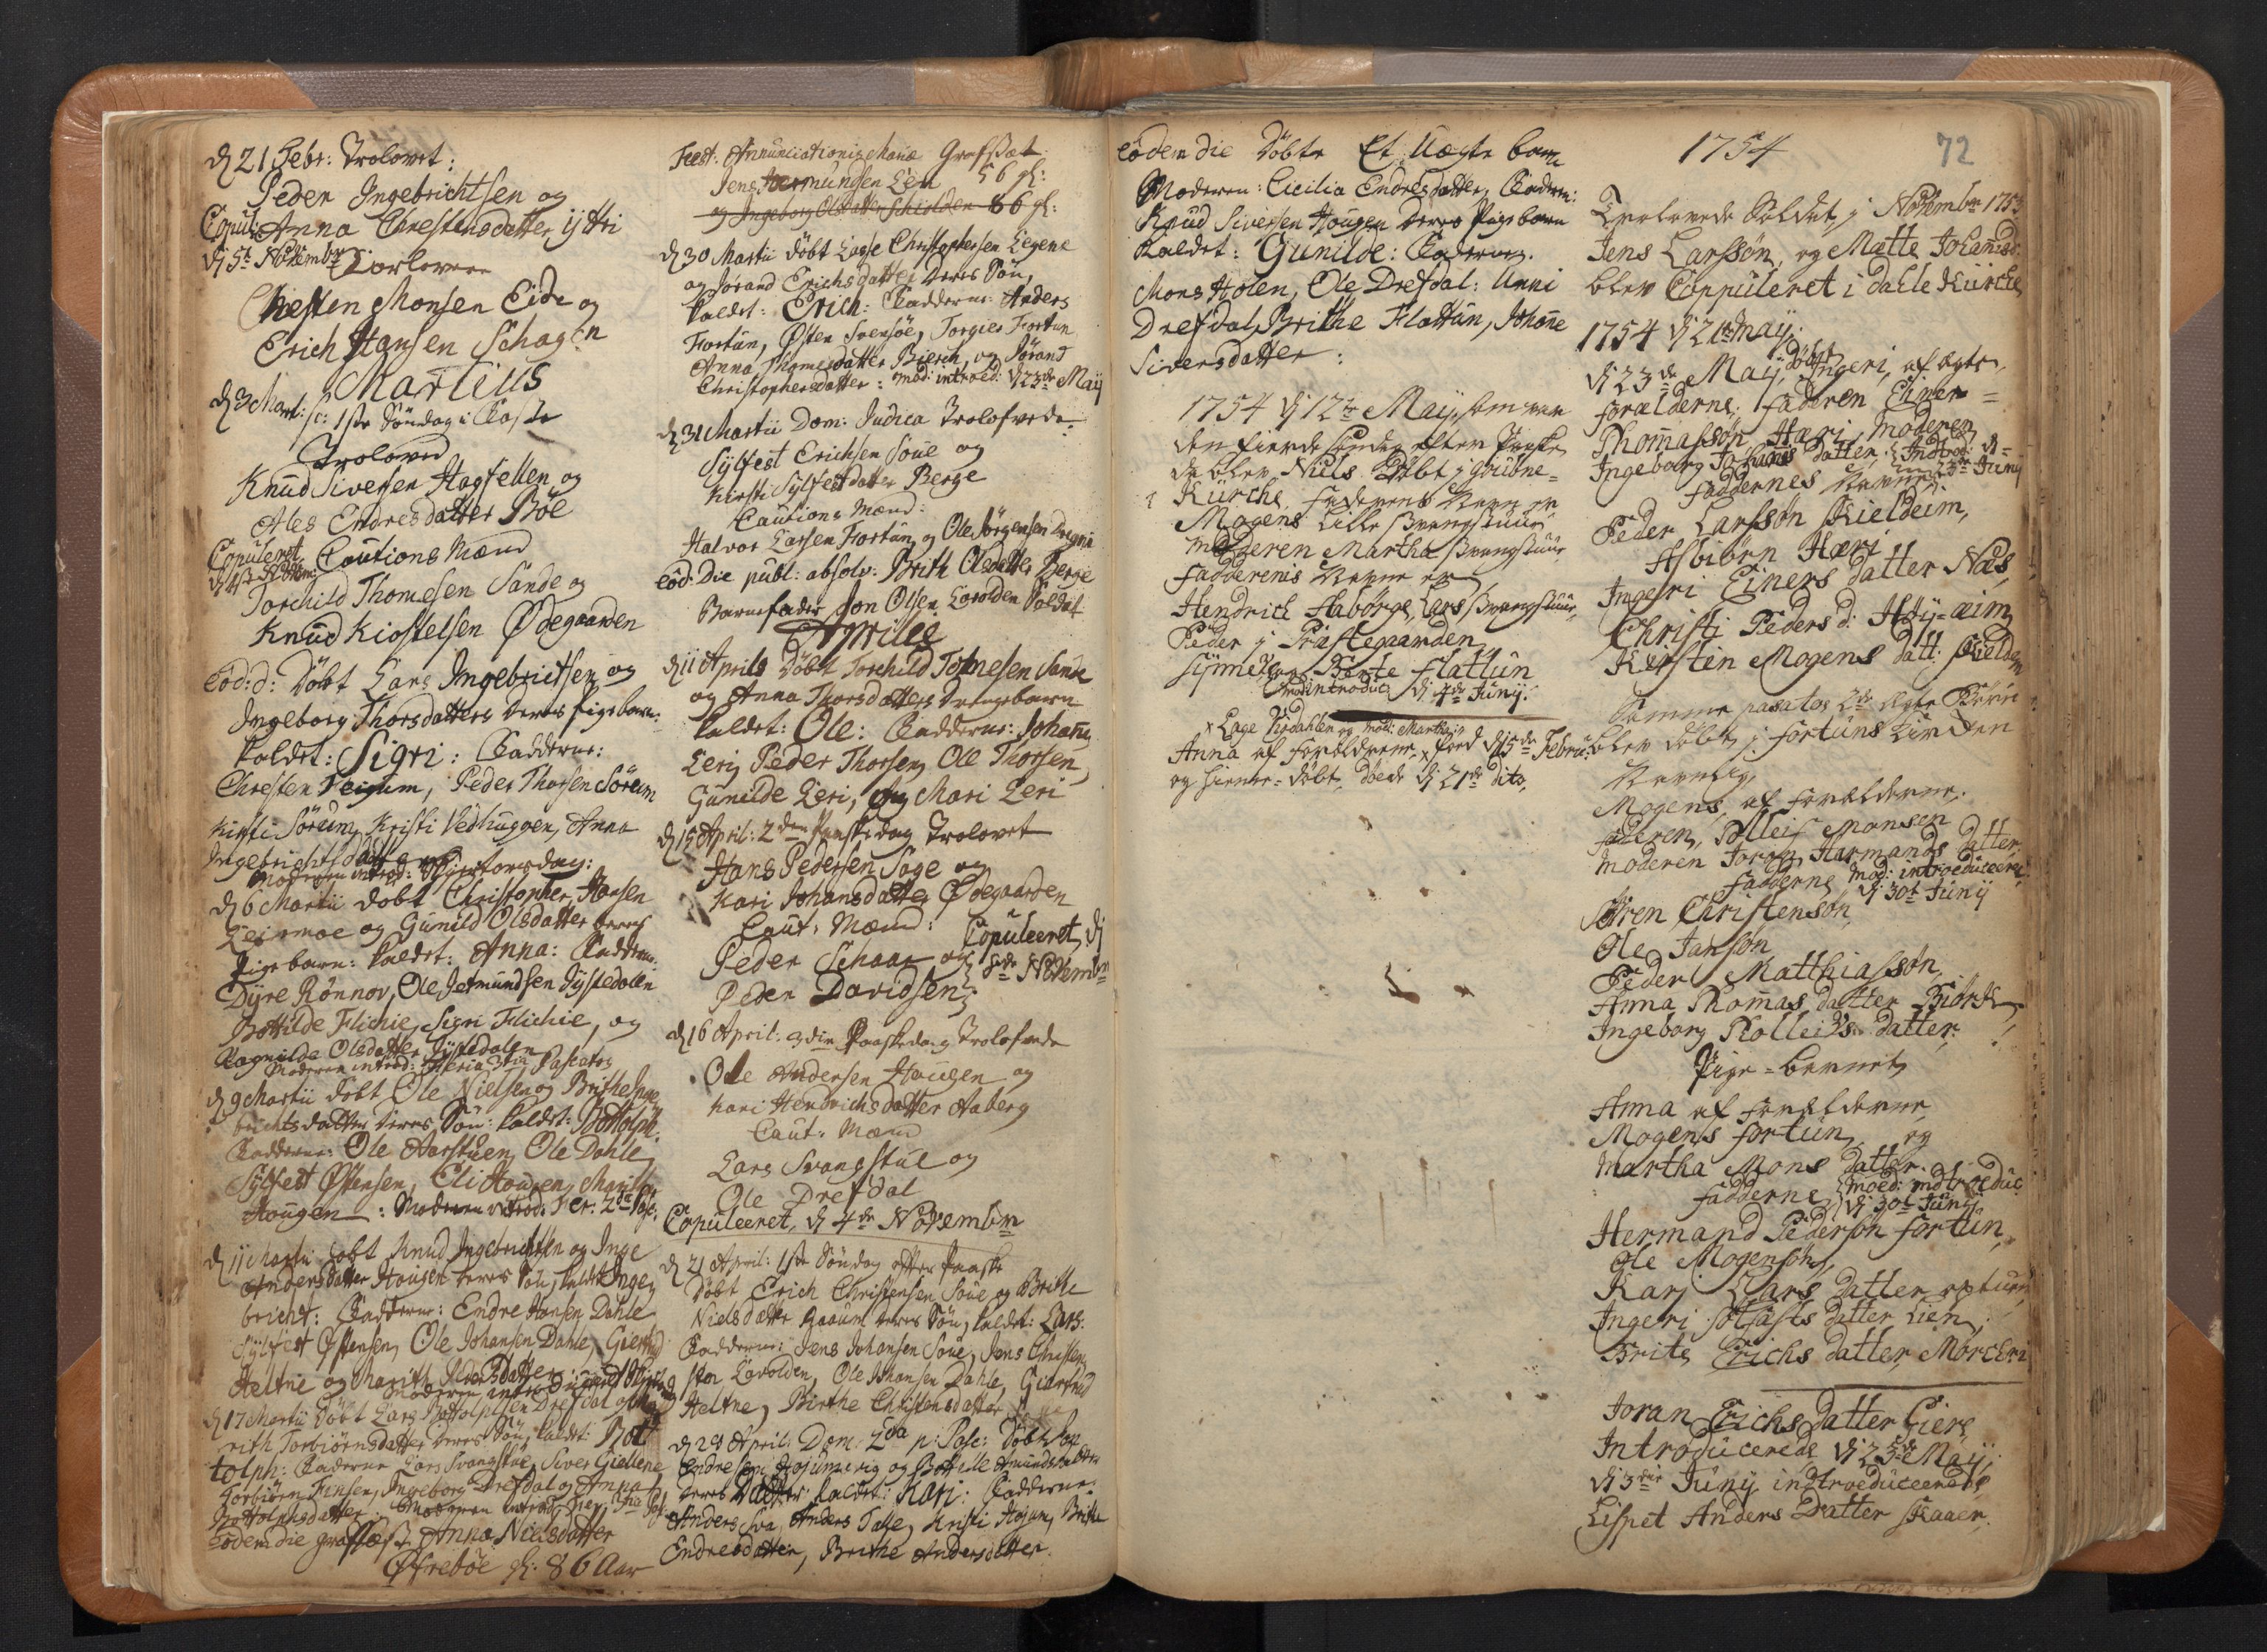 d 21 Febr: Trolovet:
Peder Ingebrichtsen og
Anna Chrestensdatter ytri
Copul:
d 5te Novembr
Forlovere
Chresten Monsen Eide og
Erich Hansen Schagen
Martius
d 3 Mart: sc: 1ste Søndag i Faste
Troloved
Knud Siversen Hagfellen og
Ales Endresdatter Böe
Copuleret
Cautions Mænd
Torchild Thomesen Sande og
Knud Kiostelsen Ødegaarden
eod: d: Döbt Lars Ingebrictsen og
Ingeborg Thorsdatters deres pigebarn
kaldet: Sigri: Fadderne:
Chresten Veigum, Peder Thorsen Söreim
Kirsti Söreim, Kristi Vedhuggen, Anna
Ingebrichtsdatter
Moderen introd: Skiertorsdag:
d 6 Martii döbt Christopher Hansen
Leirmoe og Gunild Olsdatter deres
Pigebarn: kaldet: Anna: Fadderne:
Dÿre Rönnov, Ole Jetmundsen Jÿstedalen
Bottilde Flichie, Sigri Flichie, og
Ragnilde Olsdatter Jÿstedalen
Moderen introd: Feria 3tia Pascatos
d 9 Martii döbt Ole Nielsen og Brithe Inge
brichtsdatter deres Sön: kaldet: Bottolph:
Fadderne: Ole Aarstuen, Ole Dahle,
Sÿlfest Østensen, Eli Hougen, Marit
Hougen: Moderen introd: Fer: 2da Pasc:
d 11 Martii döbt Knud Ingebrichtsen og Inge
Andersdatter Hougen deres Sön, kaldet Inge
bricht: Fadderne: Endre Hansen Dahle
Sÿlfest Østensen, Ole Johansen Dahle, Giertrud
Heltne og Marith Pedersdatter:
d 17 Martii Döbt Lars Bottolphsen Drefdal og Ma
rith Torbiörnsdatter deres Sön, kaldet: Bot
tolph: Fadderne Lars Svangstue, Siver Giellene
Torbiörn Jensen, Ingeborg Drefdal og Anna
Bottolphsdatter: Moderen introd: Fer: 3tia Pas:
eodem die grafsæst Anna Nielsdatter
Øfrebøe gl: 86 Aar
Fest: Annunciationis Mariæ Grafsat
Jens Hermundsen Lien 56 gl:
og Ingeborg Olsdatter Schiolden 86 gl:
d 30 Martii döbt Lasse Christophersen Legene
og Jörand Erichsdatter deres Sön,
kaldet: Erich: Fadderne: Anders
Fortun, Østen Svensöe, Torgier Fortun
Anna Thomesdatter Bierch, og Jörand
Christophersdatter: mod: introed: d 23de Maÿ
d 31 Martii Dom: Judica Trolofvede
Sÿlfest Erichsen Soue og
Kirsti Sÿlfestdatter Berge
Cautions Mænd:
Halvor Larsen Fortun og Ole Jörgensen Dregni
Eod: Die publ: absolv: Brith Olsdatter Berge
Barnefader Jon Olsen Eorolden Soldat
Aprilis
d 11 Aprils Döbt Torchild Tomesen Sande
og Anna Thorsdatters drengebarn
kaldet: Ole: Fadderne: Johans
Leri, Peder Thorsen, Ole Thorsen,
Gunilde Leri, og Mari Leri
d 15 April: 2den Paaskedag Trolovet
Hans Pedersen Soge og
Kari Johansdatter Ødegaarden
Caut: Mænd:
Copuleeret, d
Peder Schaar og
Peder Davidsen;
d 16 April: 3die Paaskedag Trolofvede
Ole Andersen Haugen og
Kari Hendrichsdatter Aaberg
Caut: Mænd
Lars Svangstue og
Ole Drefdal
Copuleeret, d 4de Novembr
d 21 April: 1ste Söndag efter Paaske
Döbt Erich Christensen Soue og Brithe
Nielsdatter Raaum deres Sön, kaldet: Lars:
Fadderne: Jens Johansen Soue, Jens Christen
sen Eorolden, Ole Johansen Dahle, Giertrud
Heltne, Birthe Christensdatter
d 28 April: Dom: 2da p: Pasc: Döbt
Endresen og Bottille Amundsdatter
deres Datter kaldet: Kari: Fadderne:
Anders Sva, Anders Talle, Kristi Hojum, Brithe
Endresdatter, Brithe Andersdatter.
eodem die Döbte Et Uægte barn
Moderen: Cicilia Endresdatter, Faderen:
Knud Siversen Hougen deres Pigebarn
Kaldet: Gunilde: Fadderne.
Mons Holen, Ole Drefdal: Unni
Drefdal, Brithe Flattun, Johanne
Siversdatter:
1754 d 12te Maÿ, som var
den fierde söndag efter Paaske
da blev Niels Döbt i
Kürche, Faderens Navn er
Mogens Lille Svangstuur
moderen Martha Svangstuur
Fadderenis Navne er
Hendrich Haborge, Lars Svangstuur,
Peder i Præstegaarden,
Sÿnnev, Bente Flattun
introduc d 4de Junÿ.
Anna af Foreldrene
og hieme-döbt, döede d 21de dito,
1754
72
Trolovede Soldat i Novembr 1753
Jens Larssön, og Mætte Johansd:
blev Coppuleret i Dahle Kürche
1754 d 21te maÿ.
d 23de Maÿ, döbt Ingeri, af ægte
forælderne; faderen Einer
Thomassön Hæri, moderen
Ingeborg Johans datter;
faddernes Navne
Peder Larssön Kieldeim,
Asbiörn Hæri
Ingeri Einers datter Næs,
Christi Peders d: Höÿ-æim,
Kirstin Mogens datt:
Samme
blev döbt i fortuns Kirken
Navnlig
Mogens, af forælderne,
faderen, Tolleif Monsen
moderen Joran Harmands datter,
fadderne, mod: introeduceeret
d 30t Junÿ
Sören Christensön
Ole Jansön
Peder Matthiassön,
Anna Thomas datter Biörk
Ingeborg Tolleifs datter,
Pige-barnet
Anna af forælderne,
Mogens fortun og
martha Mons datter,
fadderne, moed: indtroeduc:
d 30t Junÿ
Hermand Pedersön fortun,
Ole Mogensön,
Kari Lars datter optun,
Ingeri datter Lien,
Brite Erichs datter, Mörckri
Joran Erichs datter Eiere
Introducerede d 23de Maÿ,
d 3die Junÿ indtroeduceerede
Lispet Anders Datter Skaaer,